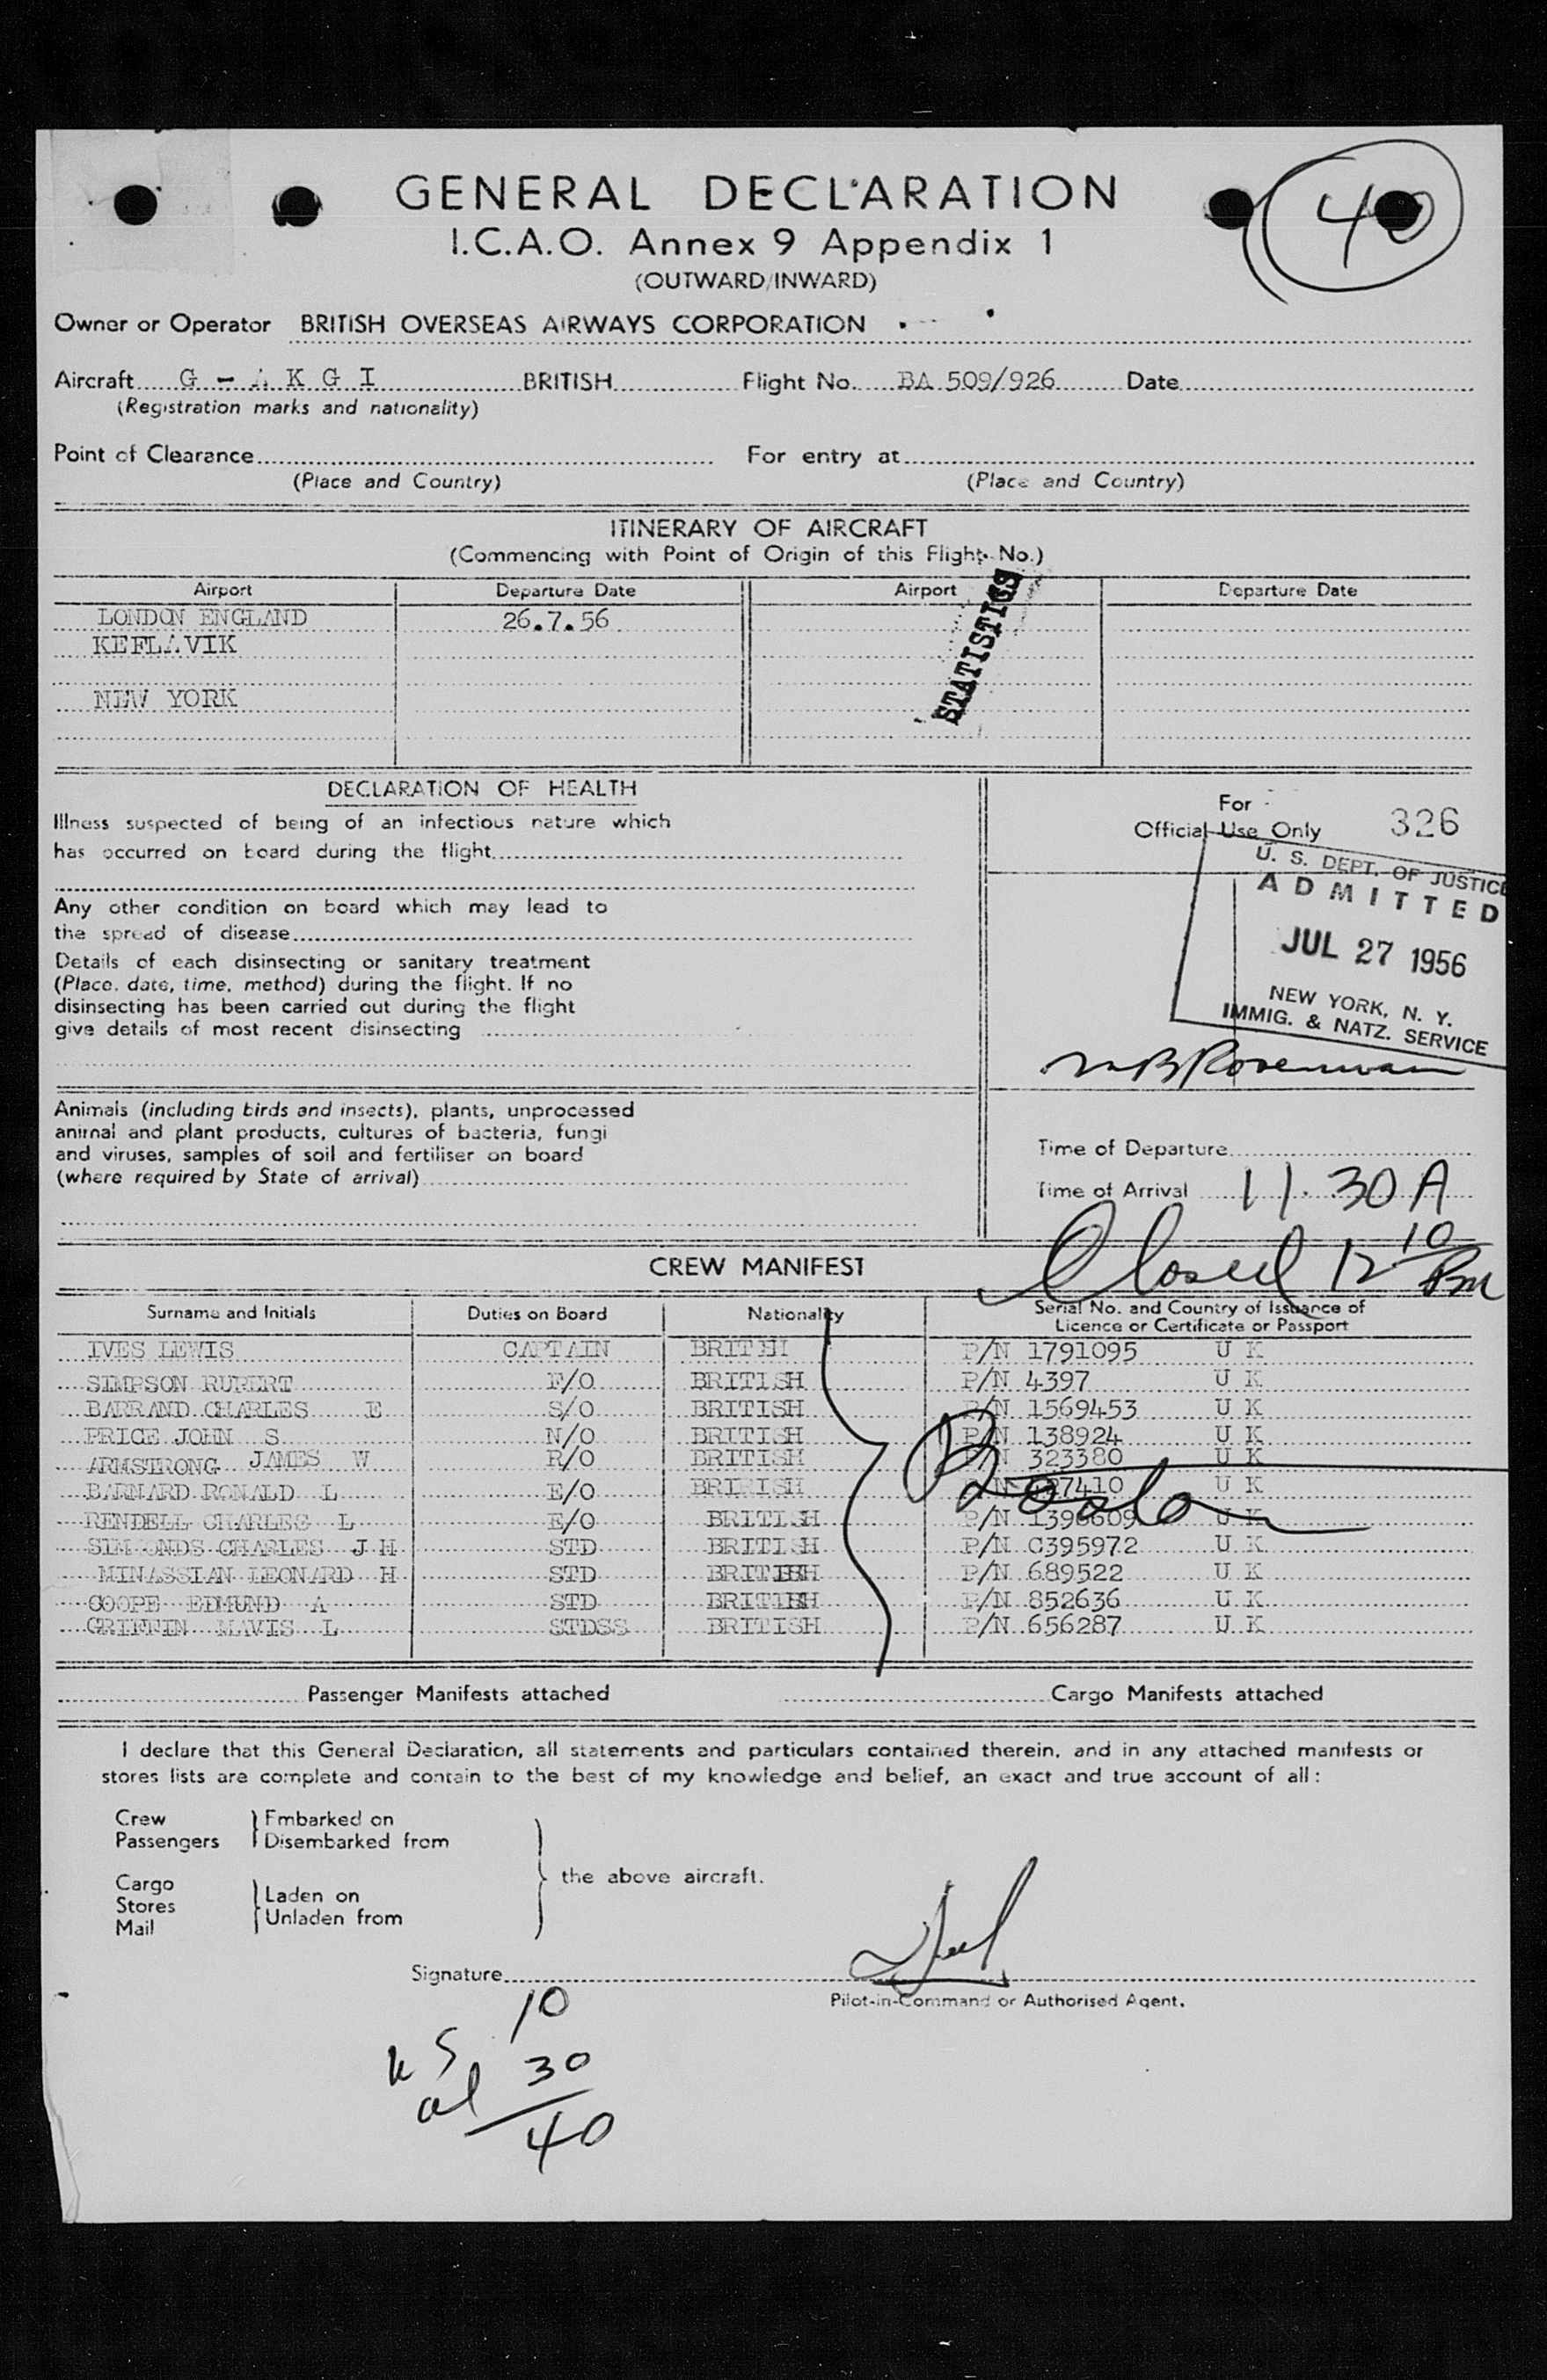 40
GENERAL DECLARATION
I.C.A.O. Annex 9 Appendix 1
(OUTWARD/INWARD)
Owner or Operator BRITISH OVERSEAS AIRWAYS CORPORATION
Aircraft G - A K G I BRITISH Flight No. BA 509/926 Date
(Registration marks and nationality)
Point of Clearance For entry at
(Place and Country) (Place and Country)
ITINERARY OF AIRCRAFT
(Commencing with Point of Origin of this Flight No.)
Airport Departure Date Airport Departure Date
LONDON ENGLAND 26.7.56
KEFLAVIK
NEW YORK
STATISTICS
DECLARATION OF HEALTH
Illness suspected of being of an infectious nature which
has occurred on board during the flight
Any other condition on board which may lead to
the spread of disease
Details of each disinsecting or sanitary treatment
(Place, date, time, method) during the flight. If no
disinsecting has been carried out during the flight
give details of most recent disinsecting
For
Official Use Only 326
U. S. DEPT. OF JUSTICE
ADMITTED
JUL 27 1956
NEW YORK, N. Y.
IMMIG. & NATZ. SERVICE
Animals (including birds and insects), plants, unprocessed
animal and plant products, cultures of bacteria, fungi
and viruses, samples of soil and fertiliser on board
(where required by State of arrival)
Time of Departure
Time of Arrival 11.30 A
Closed 12 10 PM
CREW MANIFEST
Surname and Initials Duties on Board Nationality Serial No. and Country of Issuance of
Licence or Certificate or Passport
IVES LEWIS CAPTAIN BRITEH P/N 1791095 U K
SIMPSON RUPERT F/O BRITISH P/N 4397 U K
BARRAND CHARLES E S/O BRITISH P/N 1569453 U K
PRICE JOHN S N/O BRITISH P/N 138924 U K
ARMSTRONG JAMES W R/O BRITISH P/N 323380 U K
BARNARD RONALD L E/O BRIRISH 7410 U K
RENDELL CHARLES L E/O BRITISH P/N 1396609 U K
SIMMONDS CHARLES J H STD BRITISH P/N C395972 U K
MINASSIAN LEONARD H STD BRITISH P/N 689522 U K
COOPE EDMUND A STD BRITISH P/N 852636 U K
GRIFFIN MAVIS L STDSS BRITISH P/N 656287 U K
Passenger Manifests attached Cargo Manifests attached
I declare that this General Declaration, all statements and particulars contained therein, and in any attached manifests or
stores lists are complete and contain to the best of my knowledge and belief, an exact and true account of all :
Crew Embarked on
Passengers Disembarked from
the above aircraft.
Cargo
Stores Laden on
Mail Unladen from
Signature
Pilot-in-Command or Authorised Agent.
10
U S 30
al
40